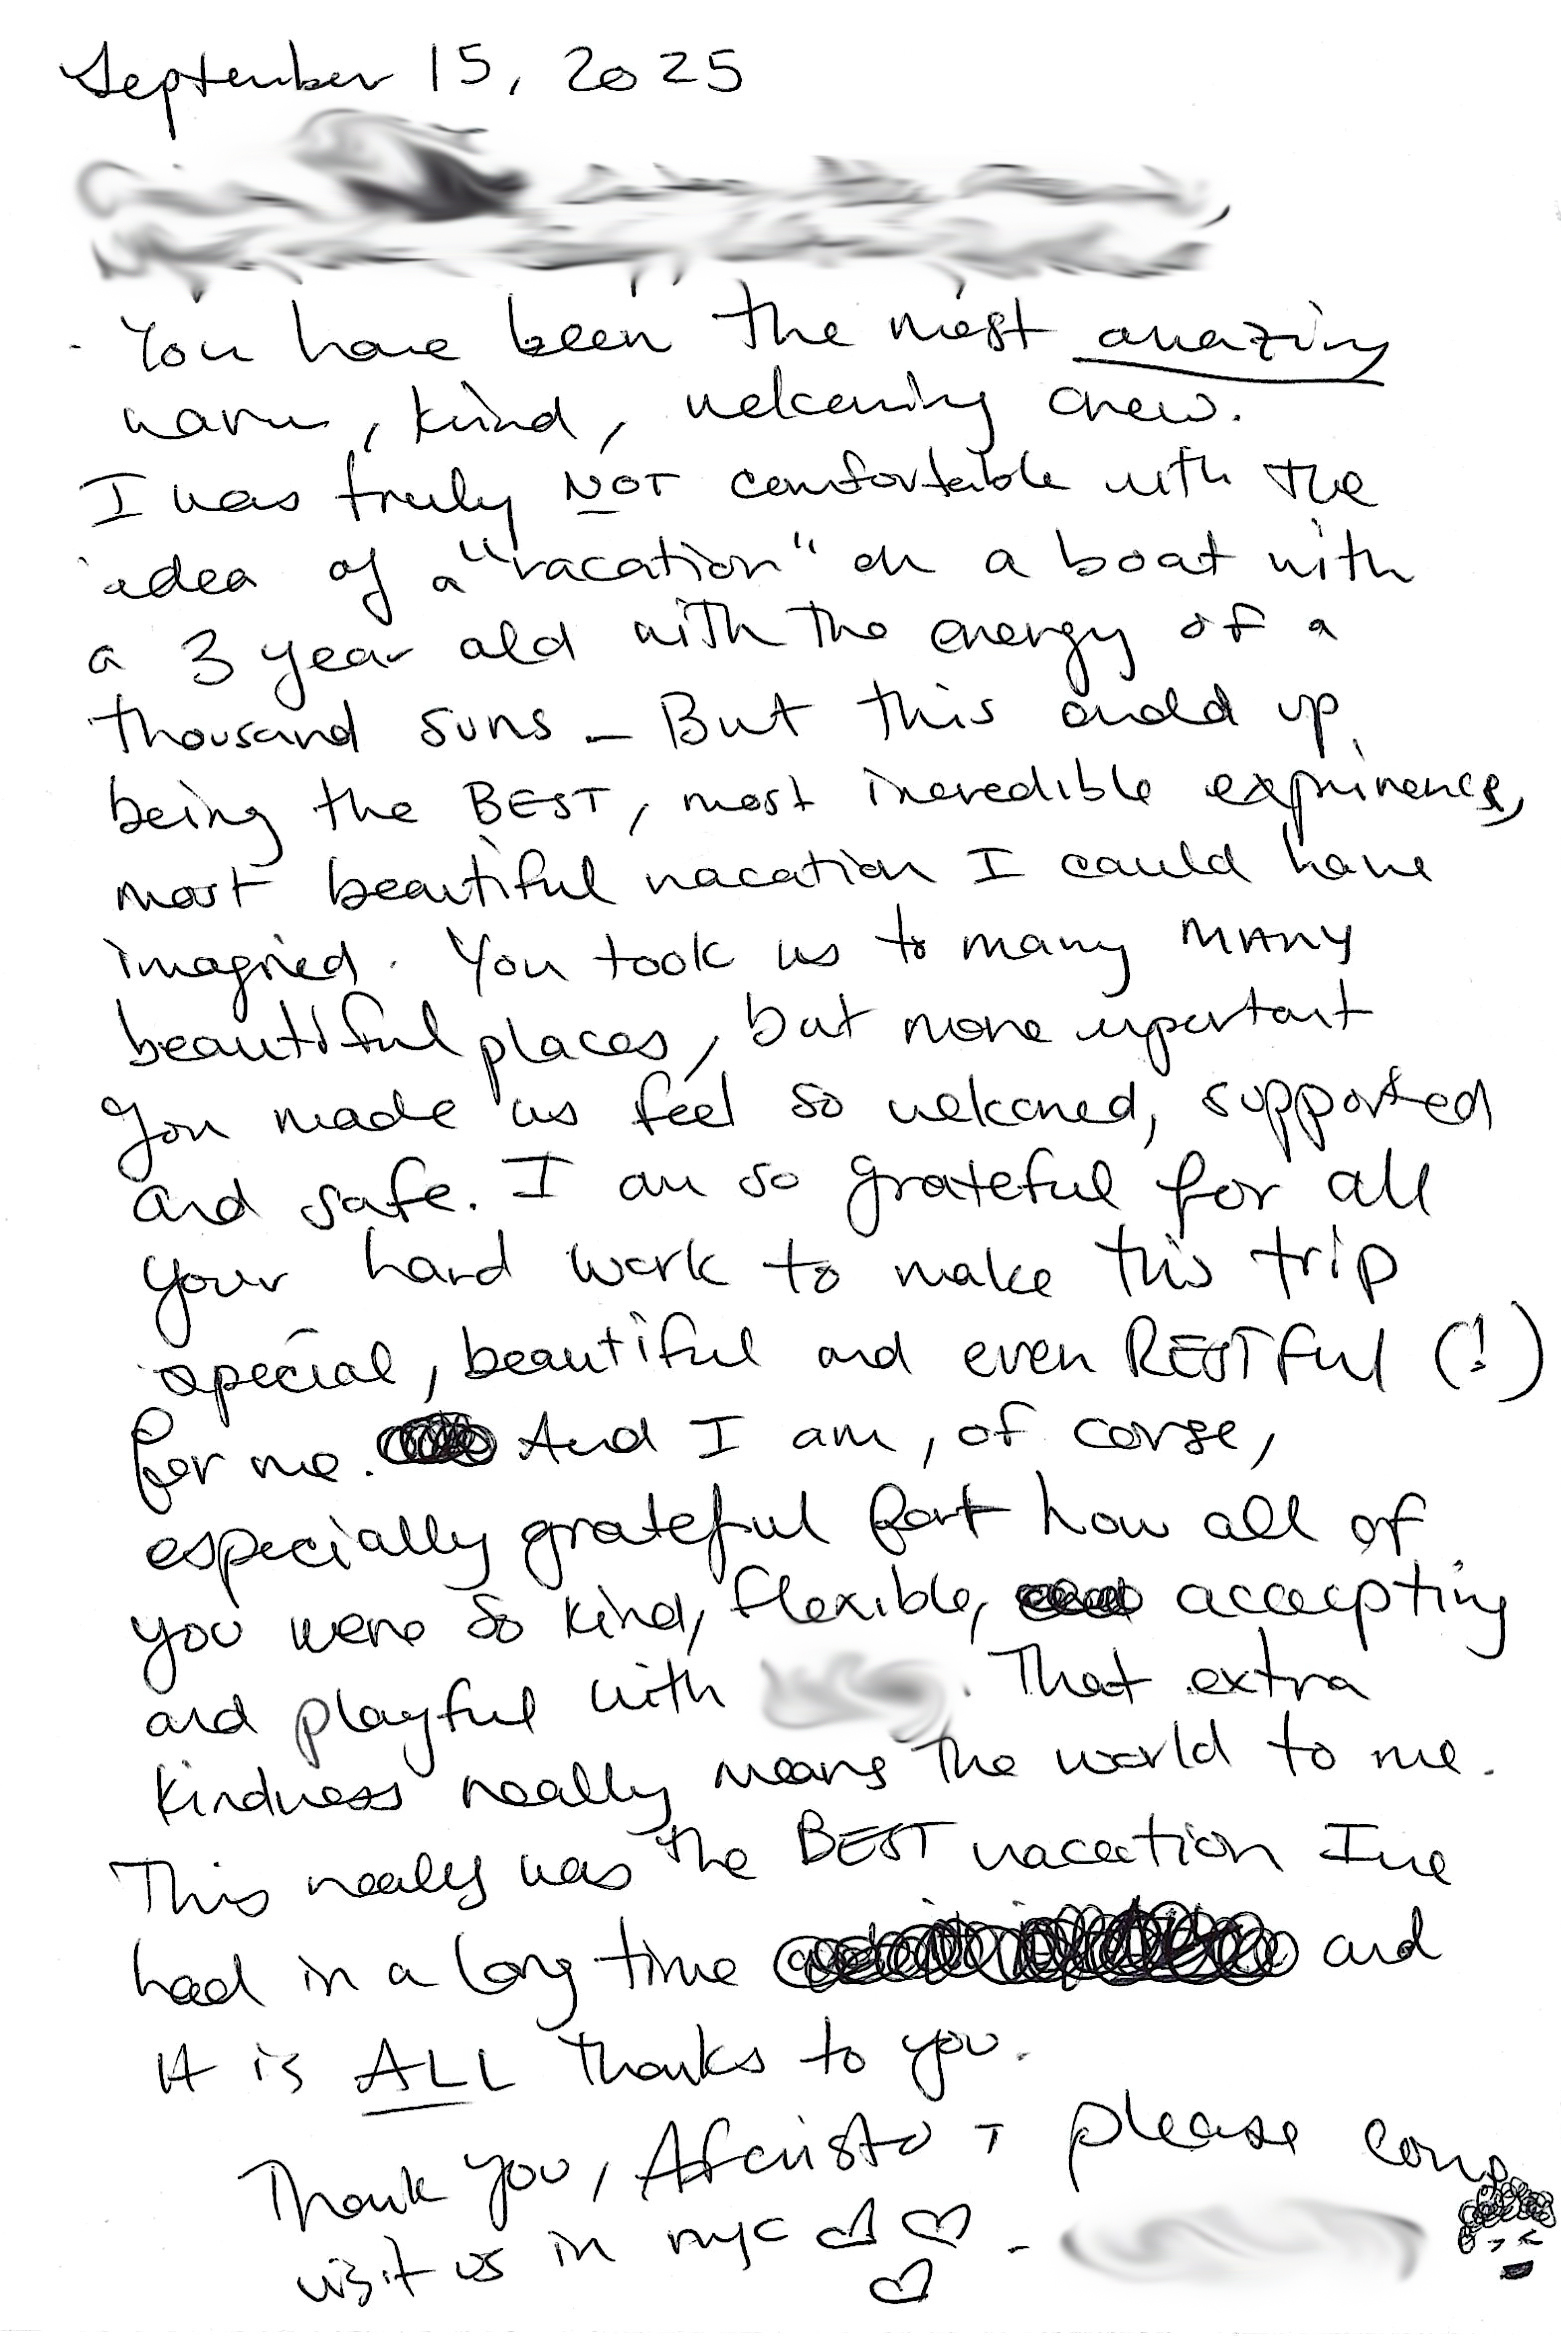 September 15, 2025
You have been the most amazing
warm, kind, welcoming crew.
I was truly NOT comfortable with the
idea of a "vacation" on a boat with
a 3 year old with the energy of a
thousand suns - But this ended up
being the BEST, most incredible exprinence,
most beautiful vacation I could have
imagined. You took us to many MANY
beautiful places, but more important
you made us feel so welcomed, supported
and safe. I am so grateful for all
your hard work to make this trip
special, beautiful and even RESTful (!)
for me. And I am, of corse,
especially grateful fort how all of
you were so kind, flexible, accepting
and playful with . That extra
kindness really means the world to me.
This really was the BEST vacation Ive
had in a long time and
it is ALL thanks to you.
Thank you, Afcristo + please come
visit us in nyc ♡ ♡ -
♡